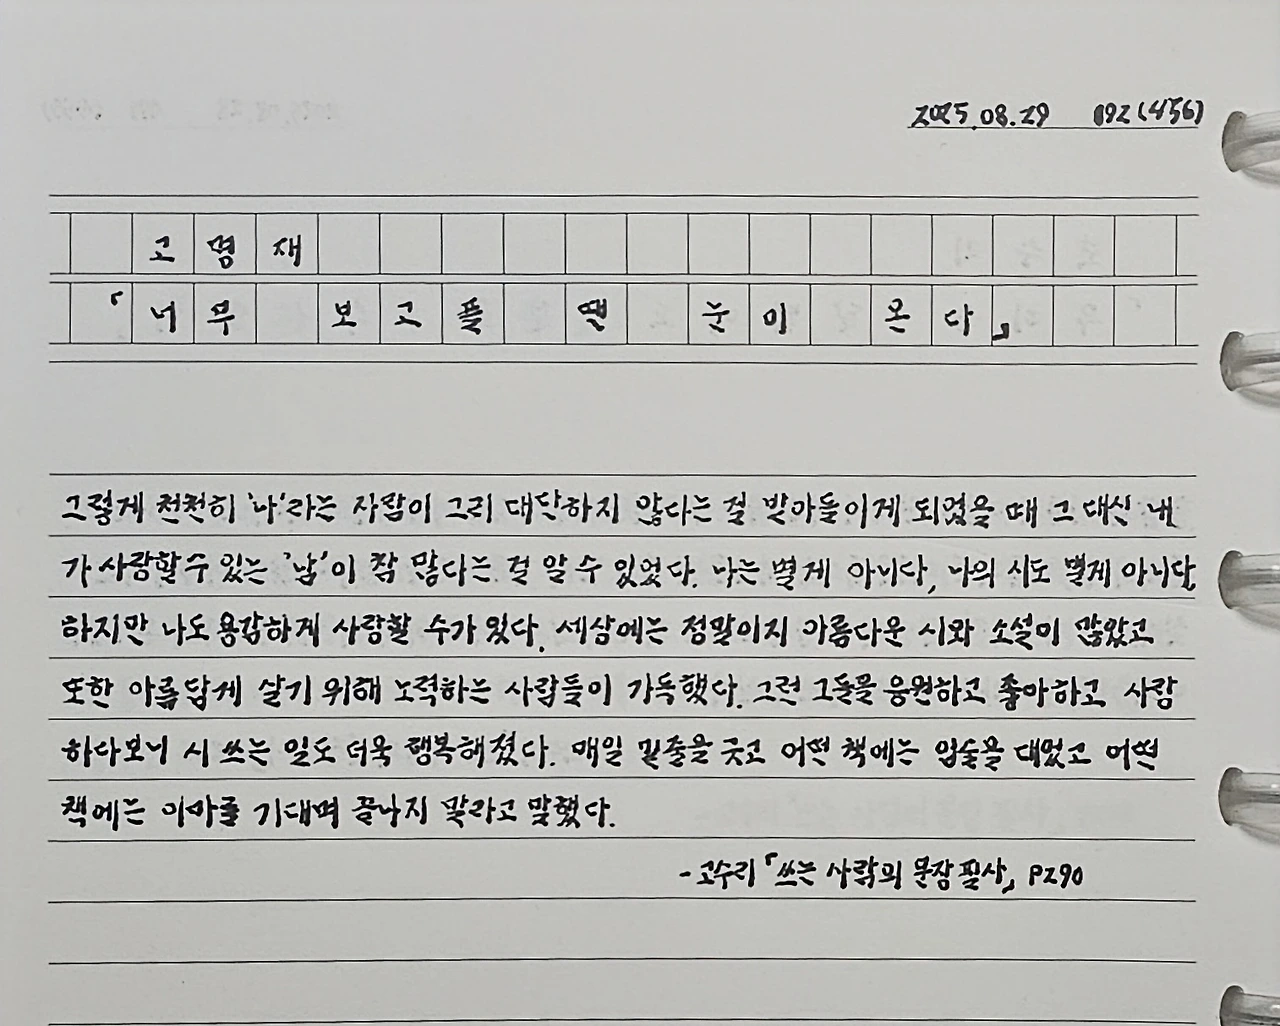 2025.08.29 192(456)
고명재
「너무 보고플 땐 눈이 온다」
그렇게 천천히 '나'라는 사람이 그리 대단하지 않다는 걸 받아들이게 되었을 때 그 대신 내
가 사랑할 수 있는 '남'이 참 많다는 걸 알 수 있었다. 나는 별게 아니다, 나의 시도 별게 아니다
하지만 나도 용감하게 사랑할 수가 있다. 세상에는 정말이지 아름다운 시와 소설이 많았고
또한 아름답게 살기 위해 노력하는 사람들이 가득했다. 그런 그들을 응원하고 좋아하고 사랑
하다보니 시 쓰는 일도 더욱 행복해졌다. 매일 밑줄을 긋고 어떤 책에는 입술을 대었고 어떤
책에는 이마를 기대며 끝나지 말라고 말했다.
-고수리「쓰는 사람의 문장 필사」 P290